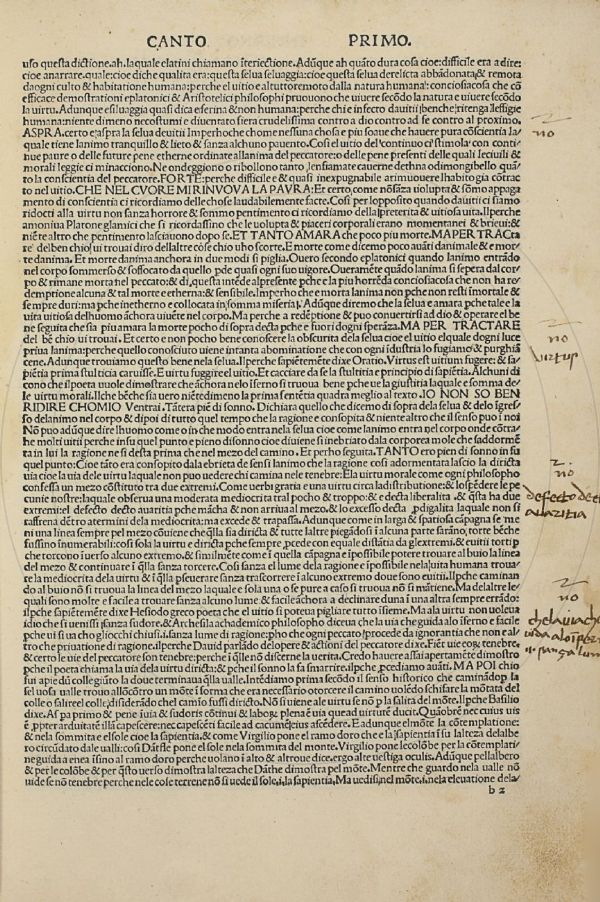 CANTO PRIMO.
uſo queſta dictione.ah.laquale elatini chiamano iteriectione. Adūque ah quāto dura coſa cioe:difficile era a dire:
cioe anarrare.quale:cioe diche qualita era:queſta ſelua ſeluaggia:cioe queſta ſelua derelicta abbādonata,& remota
daogni culto & habitatione humana:perche el uitio e altutto remoto dalla natura humana:conciosiacoſa che cō
efficace demoſtrationi eplatonici & Ariſtotelici philoſophi pruouono che uiuere ſecōdo la natura e uiuere ſecōdo
la uirtu. Adunque eſſuluaggia quaſi dica e ſera & non humana:perche chi e infecto dauitii benche ritenga leffigie
humana:niente dimeno necoſtumi e diuentato fiera crudeliſſima contro a dio contro ad ſe contro al proximo.
ASPRA.certo e aſpra la ſelua deuitii Imperhoche chome neſſuna choſa e piu ſoaue che hauere pura cōſcientia la/
quale tiene lanimo tranquillo & lieto & ſanza alchuno pauento. Coſi el uitio del cōtinuo ci ſtimola con conti/
nue paure o delle future pene etherne ordinate allanima del peccatore:o delle pene preſenti delle quali leciuili &
morali leggie ci minacciono. Ne ondeggiono o ribollono tanto lenſiamate cauerne dethna odimongibello quā/
to la conſcientia del peccatore. FORTE:perche difficile e & quaſi inexpugnabile arimuouere lhabito gia cōtrac/
to nel uitio. CHE NEL CVORE MI RINVOVA LA PAVRA: Et certo come nōſāza uolupta & ſōmo appaga
mento di conſcientia ci ricordiamo delle choſe laudabilemente facte. Coſi per loppoſito quando dauitii ci ſiamo
ridocti alla uirtu non ſanza horrore & ſommo pentimento ci ricordiamo della preterita & uitioſa uita. Ilperche
amoniua Platone glamici che ſi ricordaſſino che le uolupta & piaceri corporali erano momentanei & brieui: &
niēte altro che pentimento laſciauono dopo ſe. ET TANTO AMARA che poco piu morte. MA PER TRACta
re del ben choi ui trouai diro dellaltre coſe chio uho ſcorte. E morte come dicemo poco auāti danimale & e mor/
te danima. Et morte danima anchora in due modi ſi piglia. Ouero ſecondo eplatonici quando lanimo entrādo
nel corpo ſommerſo & ſoffocato da quello pde quaſi ogni ſuo uigore. Oueramēte quādo lanima ſi ſepera dal cor/
po & rimane morta nel peccato:& di queſta intēde al preſente pche e la piu horrēda concioſiacoſa che non ha re/
demptione alcuna & tal morte e etherna:& ſenſibile. Imperho che e morta lanima non pche non reſti imortale &
ſempre duri ma pche inetherno e collocata in ſomma miſeria. Adūque diremo che la ſelua e amara pche tale e la
uita uitioſa delhuomo āchora uiuēte nel corpo. Ma perche a redēptione & puo conuertirſi ad dio & operare el be
ne ſeguita che ſia piu amara la morte pocho di ſopra decta pche e fuori dogni ſperāza. MA PER TRACTARE
del bē chio ui trouai. Et certo e non pocho bene conoſcere la obſcurita dela ſelua cioe el uitio elquale dogni luce
priua lanima:perche quello conoſciuto uiene intanta abominatione che con ogni induſtria lo fugiamo & purghiā
cene. Adunque trouiamo queſto bene nela ſelua. Ilperche ſapiētemēte dixe Oratio. Virtus eſt uitium fugere:& ſa/
piētia prima ſtulticia caruiſſe. E uirtu fuggire el uitio. Et cacciare da ſe la ſtultitia e principio di ſapientia. Alchuni di
cono che il poeta uuole dimoſtrare che āchora nelo iferno ſi truoua bene pche ue la giuſtitia laquale e ſomma de/
le uirtu morali. Ilche bēche ſia uero niētedimeno la prima ſentētia quadra meglio al texto. IO NON SO BEN
RIDIRE CHOMIO Ventrai. Tātera piē di ſonno. Dichiara quello che dicemo di ſopra dela ſelua & delo igreſ/
ſo delanimo nel corpo & dipoi di tutto quel tempo che la ragione e conſopita & niente altro che il ſenſo puo i noi
Nō puo adūque dire lhuomo come o in che modo entra nela ſelua cioe come lanimo entra nel corpo onde cōtra/
he molti uitii perche inſu quel punto e pieno diſonno cioe diuiene ſi inebriato dala corporea mole che ſaddormē
ta in lui la ragione ne ſi deſta prima che nel mezo del camino. Et perho ſeguita. TANTO ero pien di ſonno in ſu
quel punto: Cioe tāto era conſopito dala ebrieta de ſenſi lanimo che la ragione coſi adormentata laſcio la diricta
uia cioe la uia dele uirtu laquale non puo uedere chi camina nele tenebre: Ela uirtu morale come ogni philoſopho
confeſſa un mezo conſtituto tra due extremi. Come uerbi gratia e una uirtu circa la diſtributione,& lo ſpēdere le pe
cunie noſtre:laquale obſerua una moderata mediocrita tral pocho & troppo:& e decta liberalita . & q̄ſta ha due
extremi:el defecto decto auaritia pche māca & non arriua al mezo. & lo exceſſo decta pdigalita laquale non ſi
raffrena dētro atermini dela mediocrita:ma excede & trapaſſa. Adunque come in larga & ſpatioſa cāpagna ſe me/
ni una linea ſempre pel mezo cōuiene che q̄lla ſia diricta & tutte laltre piegādoſi i alcuna parte ſarāno, torte bēche
fuſſino inumerabili:coſi ſola la uirtu e diricta pche ſempre pcede con equale diſtātia da gli extremi,& euitii torti p
che torcono uerſo alcuno extremo. & ſimilmēte come i quella cāpagna e ipoſſibile potere trouare al buio la linea
del mezo & continuare i q̄lla ſanza torcere. Coſi ſanza el lume dela ragione e ipoſſibile nela uita humana troua
re la mediocrita dela uirtu & i q̄lla pſeuerare ſanza traſcorrere i alcuno extremo doue ſono euitii. Ilpche caminan
do al buio nō ſi truoua la linea del mezo laquale e ſola una o ſe pure a caſo ſi truoua nō ſi mātiene. Ma delaltre le
quali ſono molte e facile a trouare ſanza alcuno lume & facile āchora a declinare duna i una altra ſempre errādo:
ilpche ſapiētemēte dixe Heſiodo greco poeta che el uitio ſi poteua pigliare tutto iſieme. Ma ala uirtu non uoleua
idio che ſi ueniſſi ſanza ſudore. & Archeſila achademico philoſopho diceua che la uia che guida alo iferno e facile
pche ui ſi ua cho gliocchi chiuſi.i.ſanza lume di ragione:pho che ogni peccato procede da ignorantia che non e al/
tro che priuatione di ragione. ilperche Dauid parlādo delopere & actioni del peccatore dixe. Fiēt uie eoꝝ tenebre
& certo le uie del peccatore ſon tenebre:perche i q̄lle nō diſcerne la uerita. Credo hauere aſſai apertamēte dimoſtro
pche il poeta chiama la uia dela uirtu diricta:& pche il ſonno la fa ſmarrire. ilpche pcediamo auāti. MA POI chio
fui apie dū collegiūto la doue terminaua q̄lla ualle. Intēdiamo prima ſecōdo il ſenſo hiſtorico che caminādop la
ſeluoſa ualle trouo allōcōtro un mōte i forma che era neceſſario o torcere il camino uolēdo ſchifare la mōtata del
colle o ſalire el colle,diſiderādo chel camīo fuſſi diricto. Nō ſi uiene ale uirtu ſe nō p la ſalita del mōte. Ilpche Baſilio
dixe. Aſpa primo & pene iuia & ſudoris cōtinui & laboꝝ plena ē uia que ad uirtutē ducit. Quāobrē nec cuius uis
ē pter arduitatē illā capeſcere:nec capeſcēti facile ad cacumē ejus aſcēdere. E adunque elmōte la cōtemplatione:
& nela ſommita e el ſole cioe la ſapientia. & come Virgilio pone el ramo doro che e la ſapientia i ſu laltezza delalbe
ro circūdato dale ualli:coſi Dāthe pone el ſole nela ſommita del monte. Virgilio pone le colōbe per la cōtemplati/
ne guida a enea iſino al ramo doro perche uolano i alto & altroue dice.ergo alte ueſtiga oculis. Adūque pellalbero
& per le colōbe & per q̄ſto uerſo dimoſtra laltezza che Dāthe dimoſtra pel mōte. Mentre che guardo nela ualle nō
uide ſe nō tenebre perche nele coſe terrene nō ſi uede il ſole.i.la ſapientia. Ma uediſi nel mōte.i.nela eleuatione dela/
b 2
no
no
uirtup
no
defecto decto
auazitia
no
che la uia che
uada alo ifer